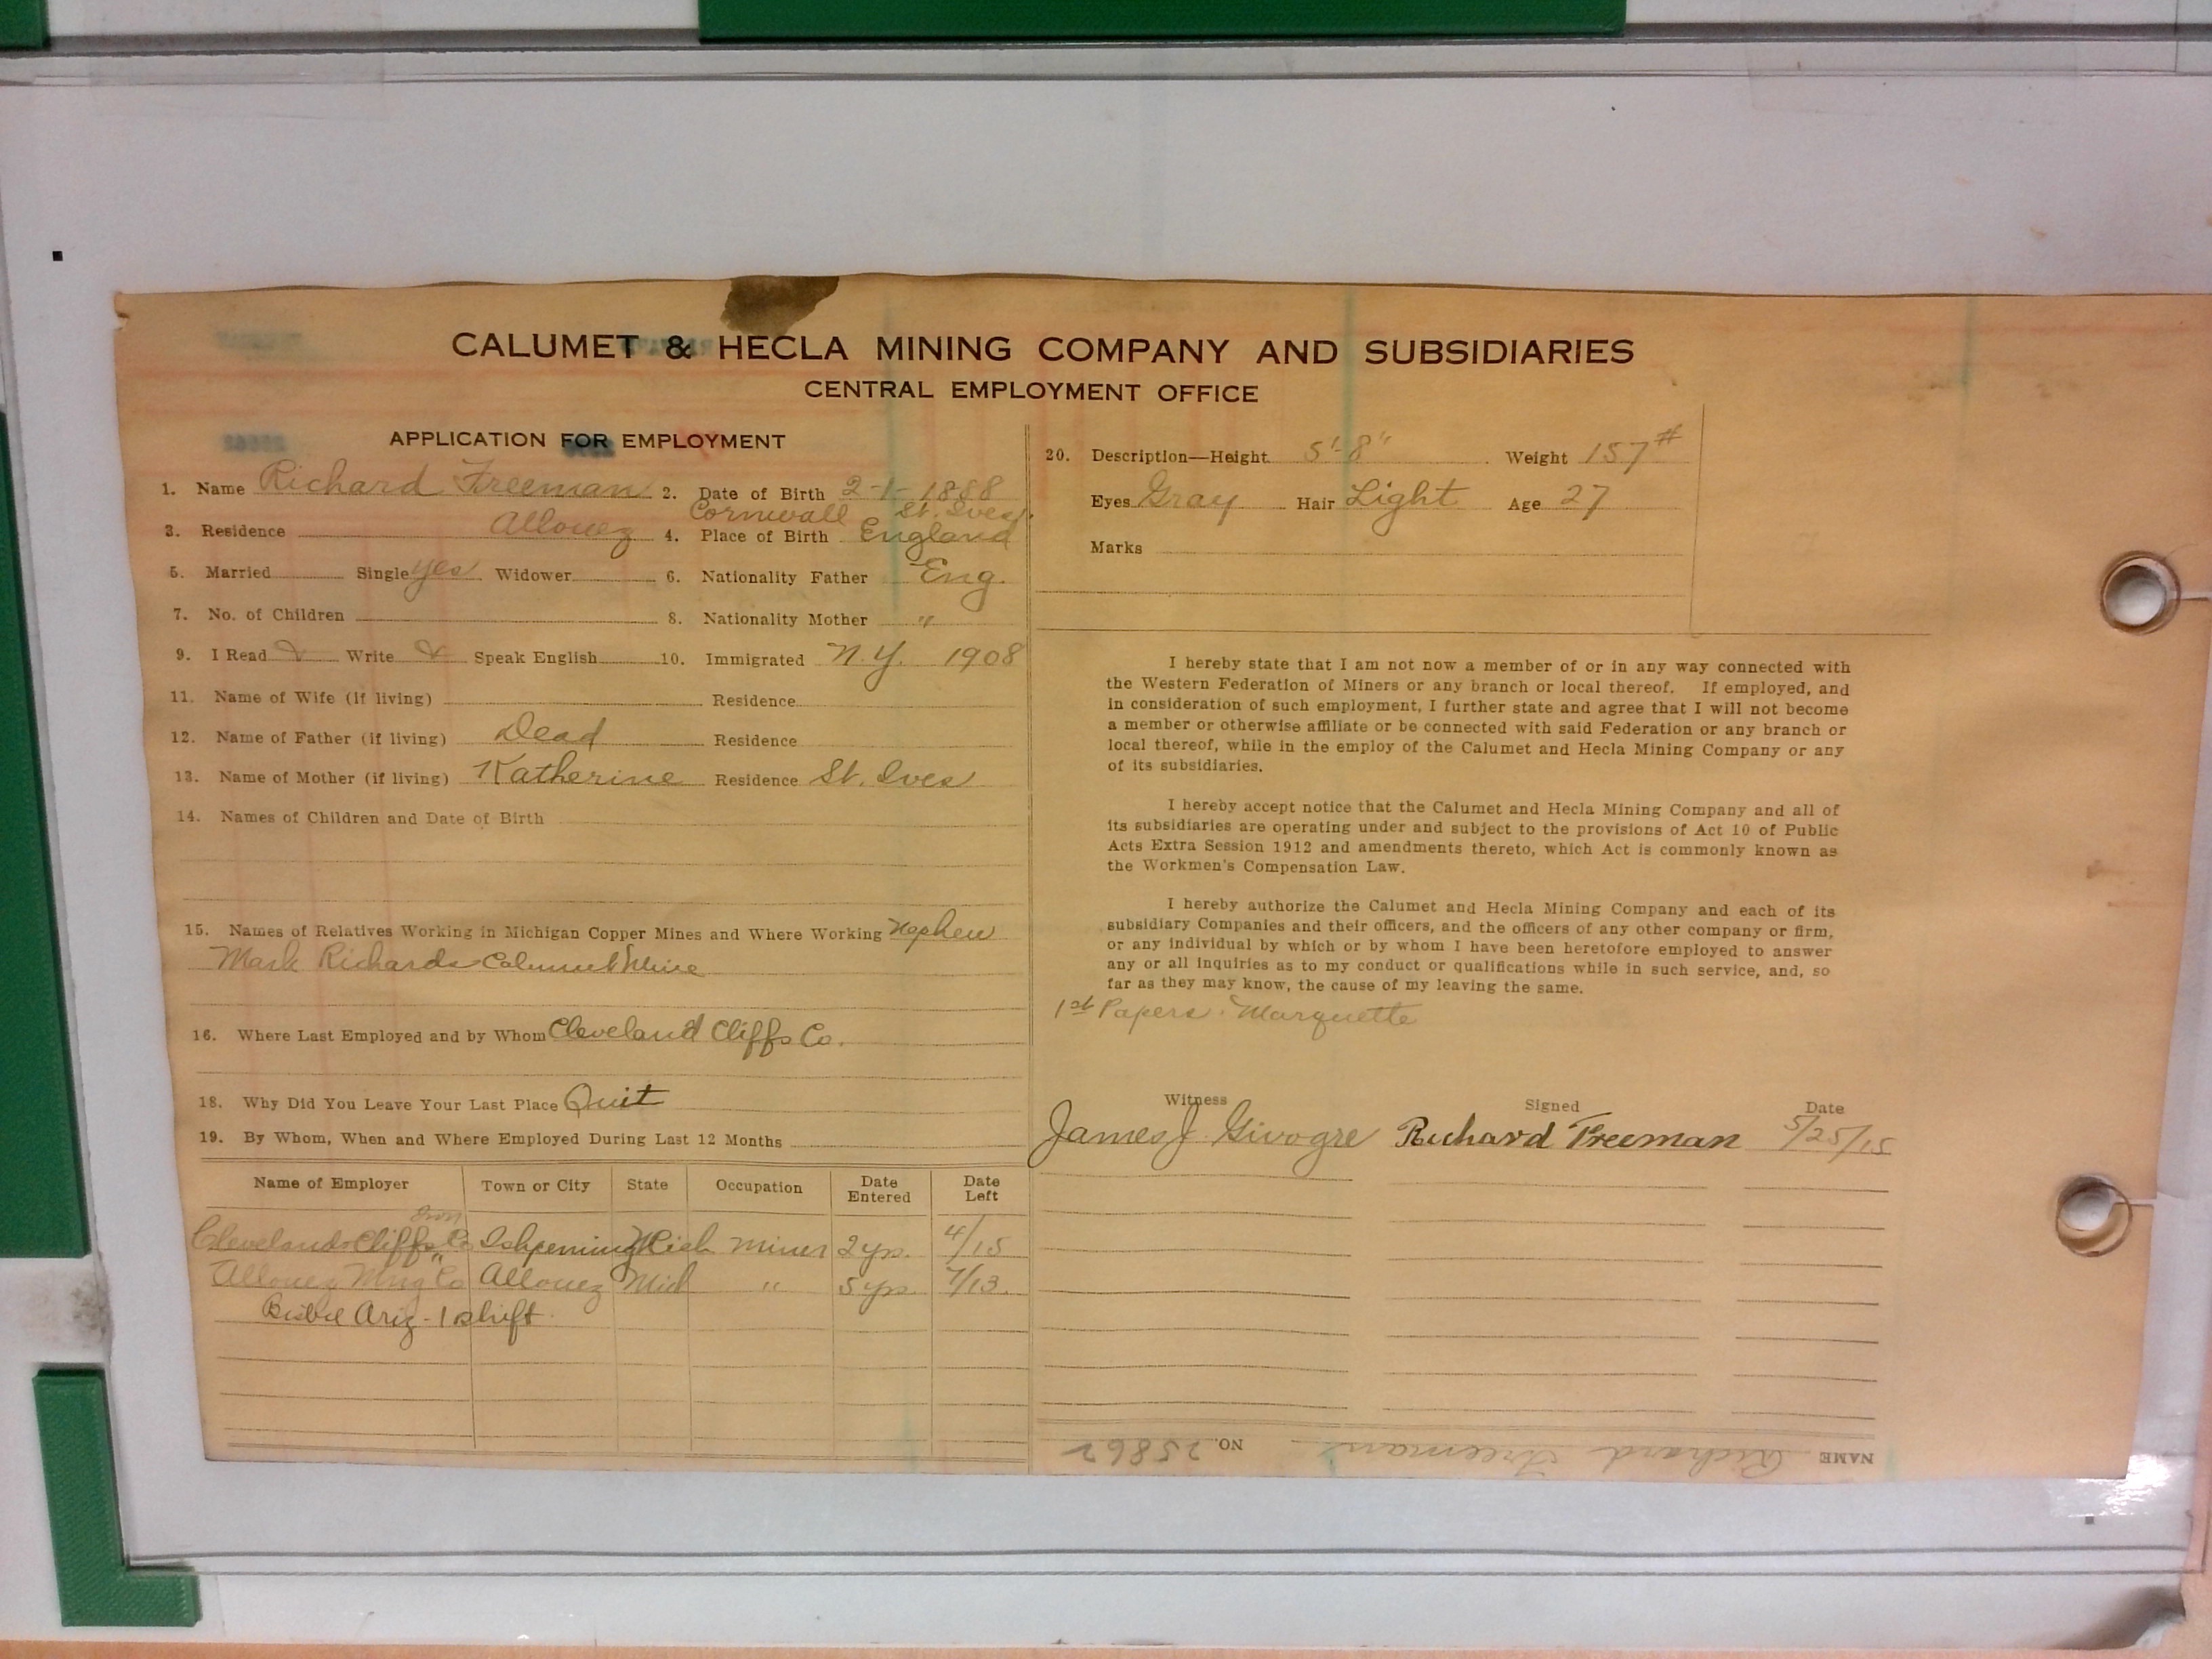 CALUMET & HECLA MINING COMPANY AND SUBSIDIARIES
CENTRAL EMPLOYMENT OFFICE
APPLICATION FOR EMPLOYMENT
1. Name Richard Freeman 2. Date of Birth 2-1-1888
Cornwall St. Ives,
3. Residence Allouez 4. Place of Birth England
5. Married Single yes Widower 6. Nationality Father Eng.
7. No. of Children 8. Nationality Mother "
9. I Read Write Speak English 10. Immigrated N.Y. 1908
11. Name of Wife (if living) Residence
12. Name of Father (if living) Dead Residence
13. Name of Mother (if living) Katherine Residence St. Ives
14. Names of Children and Date of Birth
15. Names of Relatives Working in Michigan Copper Mines and Where Working Nephew
Mark Richards Calumet Mine
16. Where Last Employed and by Whom Cleveland Cliffs Co.
18. Why Did You Leave Your Last Place Quit
19. By Whom, When and Where Employed During Last 12 Months
Name of Employer Town or City State Occupation Date Entered Date Left
Iron
Cleveland Cliffs Co Ishpeming Mich miner 2 yrs. 4/15
Allouez Mng Co Allouez Mich " 5 yrs 7/13.
Bisbee Ariz - 1 shift.
20. Description—Height 5'-8" Weight 157#
Eyes Gray Hair Light Age 27
Marks
I hereby state that I am not now a member of or in any way connected with
the Western Federation of Miners or any branch or local thereof. If employed, and
in consideration of such employment, I further state and agree that I will not become
a member or otherwise affiliate or be connected with said Federation or any branch or
local thereof, while in the employ of the Calumet and Hecla Mining Company or any
of its subsidiaries.
I hereby accept notice that the Calumet and Hecla Mining Company and all of
its subsidiaries are operating under and subject to the provisions of Act 10 of Public
Acts Extra Session 1912 and amendments thereto, which Act is commonly known as
the Workmen's Compensation Law.
I hereby authorize the Calumet and Hecla Mining Company and each of its
subsidiary Companies and their officers, and the officers of any other company or firm,
or any individual by which or by whom I have been heretofore employed to answer
any or all inquiries as to my conduct or qualifications while in such service, and, so
far as they may know, the cause of my leaving the same.
1st Papers. Marquette
Witness Signed Date
James J. Givogre Richard Freeman 5/25/15
NAME Richard Freeman NO. 25862